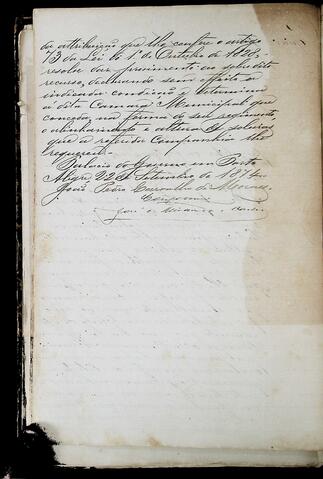 da attribuição que lhe confere o artigo
73 da Lei do 1º de Outubro de 1828,
resolve dar provimento ao sobredito
recurso, declarando sem effeito a
indicada condição, e determina
á dita Camara Municipal que
conceda, na forma do seu regimento
o alinhamento e altura das soleiras
que a referida Companhia lhe
requerer.
Palacio do Governo em Porto
Alegre, 22 de Setembro de 1874.
José Pedro Carvalho de Moraes.
Conforme